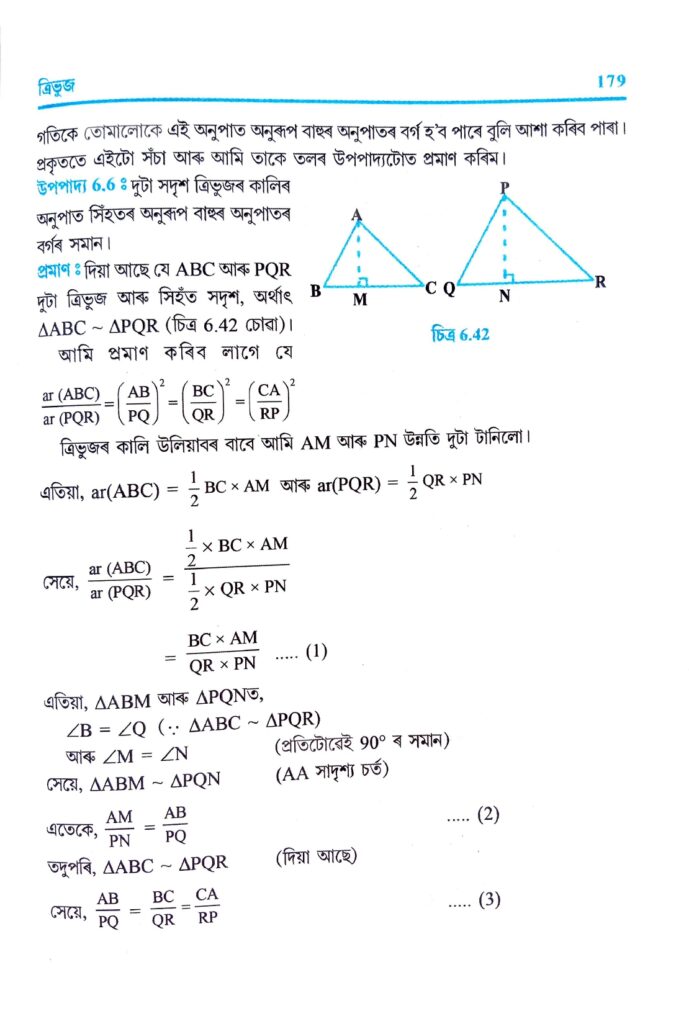 ত্ৰিভুজ 179
গতিকে তোমালোকে এই অনুপাত অনুৰূপ বাহুৰ অনুপাতৰ বৰ্গ হ'ব পাৰে বুলি আশা কৰিব পাৰা।
প্ৰকৃততে এইটো সঁচা আৰু আমি তাকে তলৰ উপপাদ্যটোত প্ৰমাণ কৰিম।
উপপাদ্য 6.6 : দুটা সদৃশ ত্ৰিভুজৰ কালিৰ
অনুপাত সিঁহতৰ অনুৰূপ বাহুৰ অনুপাতৰ
বৰ্গৰ সমান।
প্ৰমাণ : দিয়া আছে যে ABC আৰু PQR
দুটা ত্ৰিভুজ আৰু সিহঁত সদৃশ, অৰ্থাৎ
ΔABC ~ ΔPQR (চিত্ৰ 6.42 চোৱা)।
A
B
M
C
P
Q
N
R
চিত্ৰ 6.42
আমি প্ৰমাণ কৰিব লাগে যে
ar (ABC)/ar (PQR) = (AB/PQ)² = (BC/QR)² = (CA/RP)²
ত্ৰিভুজৰ কালি উলিয়াবৰ বাবে আমি AM আৰু PN উন্নতি দুটা টানিলো।
এতিয়া, ar(ABC) = 1/2 BC × AM আৰু ar(PQR) = 1/2 QR × PN
সেয়ে, ar (ABC)/ar (PQR) = (1/2 × BC × AM)/(1/2 × QR × PN)
= (BC × AM)/(QR × PN) ..... (1)
এতিয়া, ΔABM আৰু ΔPQNত,
∠B = ∠Q (∵ ΔABC ~ ΔPQR)
আৰু ∠M = ∠N (প্ৰতিটোৱেই 90° ৰ সমান)
সেয়ে, ΔABM ~ ΔPQN (AA সাদৃশ্য চৰ্ত)
এতেকে, AM/PN = AB/PQ ..... (2)
তদুপৰি, ΔABC ~ ΔPQR (দিয়া আছে)
সেয়ে, AB/PQ = BC/QR = CA/RP ..... (3)